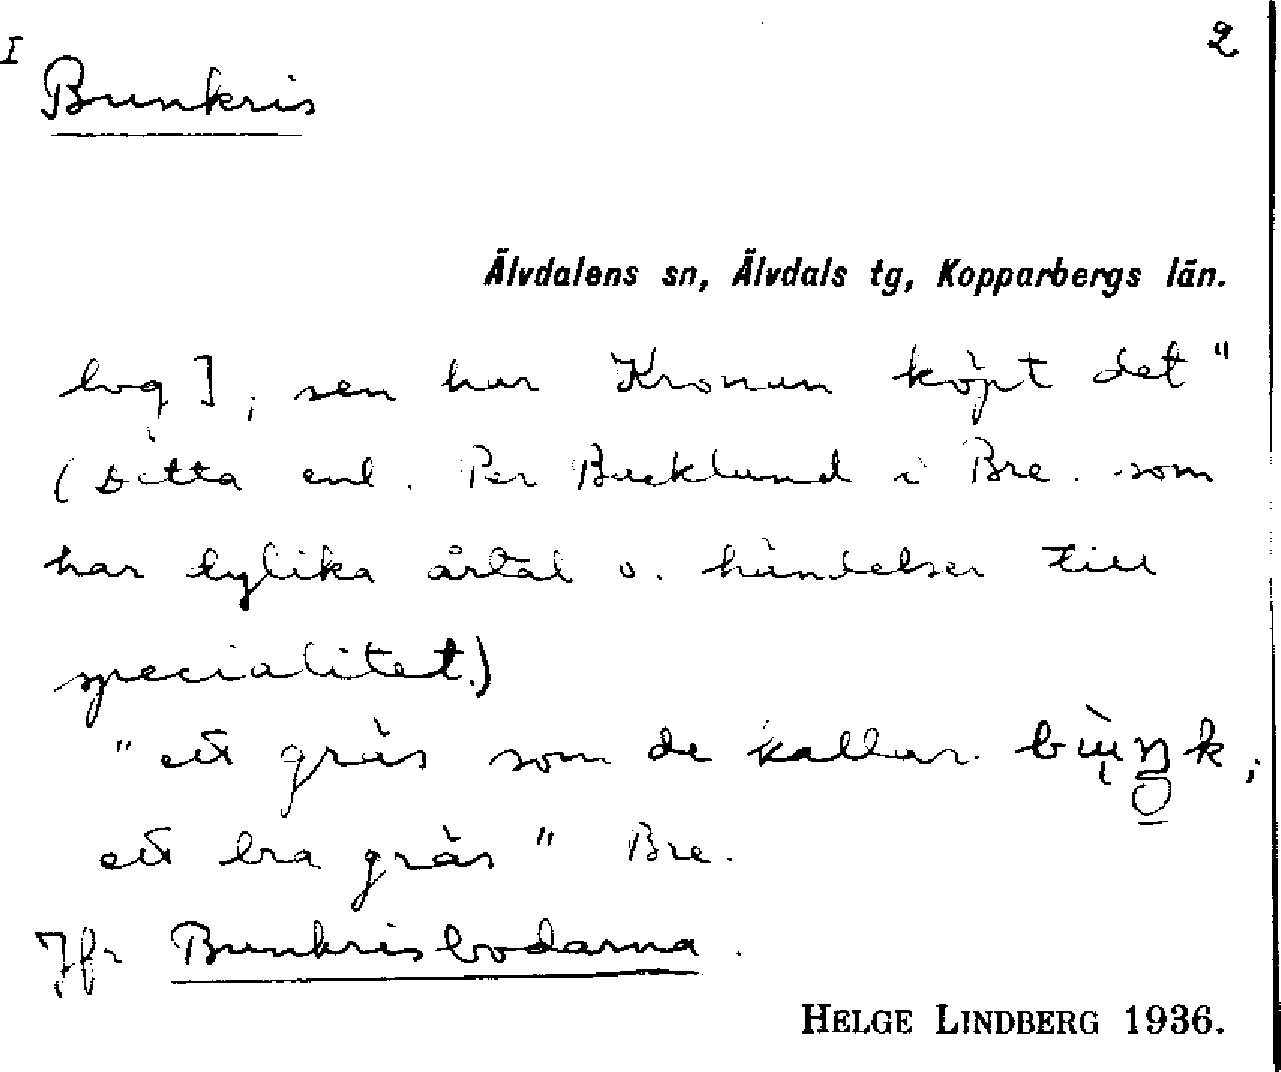 I
2
Bunkris
Älvdalens sn, Älvdals tg, Kopparbergs län.
], sen har Kronan köpt det"
(Detta enl. Per Backlund i Bre. som
har dylika årtal o. händelser till
specialitet.)
"ett gräs som de kallar
ett bra gräs" Bre.
Jfr Bunkrisbodarna.
HELGE LINDBERG 1936.